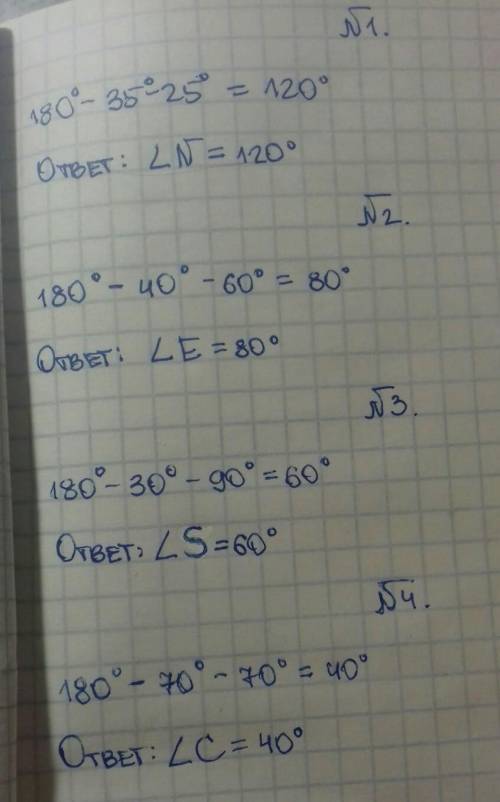 №1.
180° - 35° - 25° = 120°
Ответ: ∠N = 120°
№2.
180° - 40° - 60° = 80°
Ответ: ∠E = 80°
№3.
180° - 30° - 90° = 60°
Ответ: ∠S = 60°
№4.
180° - 70° - 70° = 40°
Ответ: ∠C = 40°